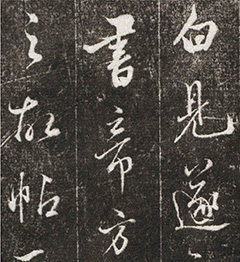 白見遂
書帝方
之故帖一